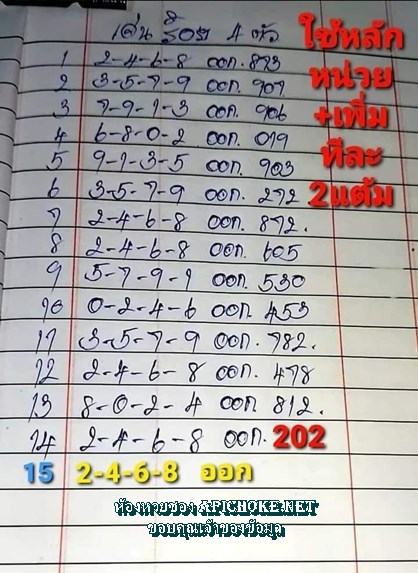 เด่น 4 ตัว
ใช้หลัก
หน่วย
+เพิ่ม
ทีละ
2แต้ม
1 2-4-6-8 ออก. 873
2 3-5-7-9 ออก. 907
3 7-9-1-3 ออก. 906
4 6-8-0-2 ออก. 019
5 9-1-3-5 ออก. 903
6 3-5-7-9 ออก. 272
7 2-4-6-8 ออก. 872.
8 2-4-6-8 ออก. 605
9 5-7-9-1 ออก. 530
10 0-2-4-6 ออก. 453
11 3-5-7-9 ออก. 782.
12 2-4-6-8 ออก. 478
13 8-0-2-4 ออก. 812.
14 2-4-6-8 ออก. 202
15 2-4-6-8 ออก
ห้องหวยซอง APICHOKE.NET
ขอบคุณเจ้าของข้อมูล